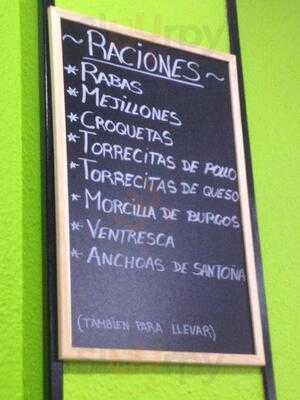 ~ RACIONES ~
* RABAS
* MEJILLONES
* CROQUETAS
* TORRECITAS DE POLLO
* TORRECITAS DE QUESO
* MORCILLA DE BURGOS
* VENTRESCA
* ANCHOAS DE SANTOÑA
(TAMBIEN PARA LLEVAR)